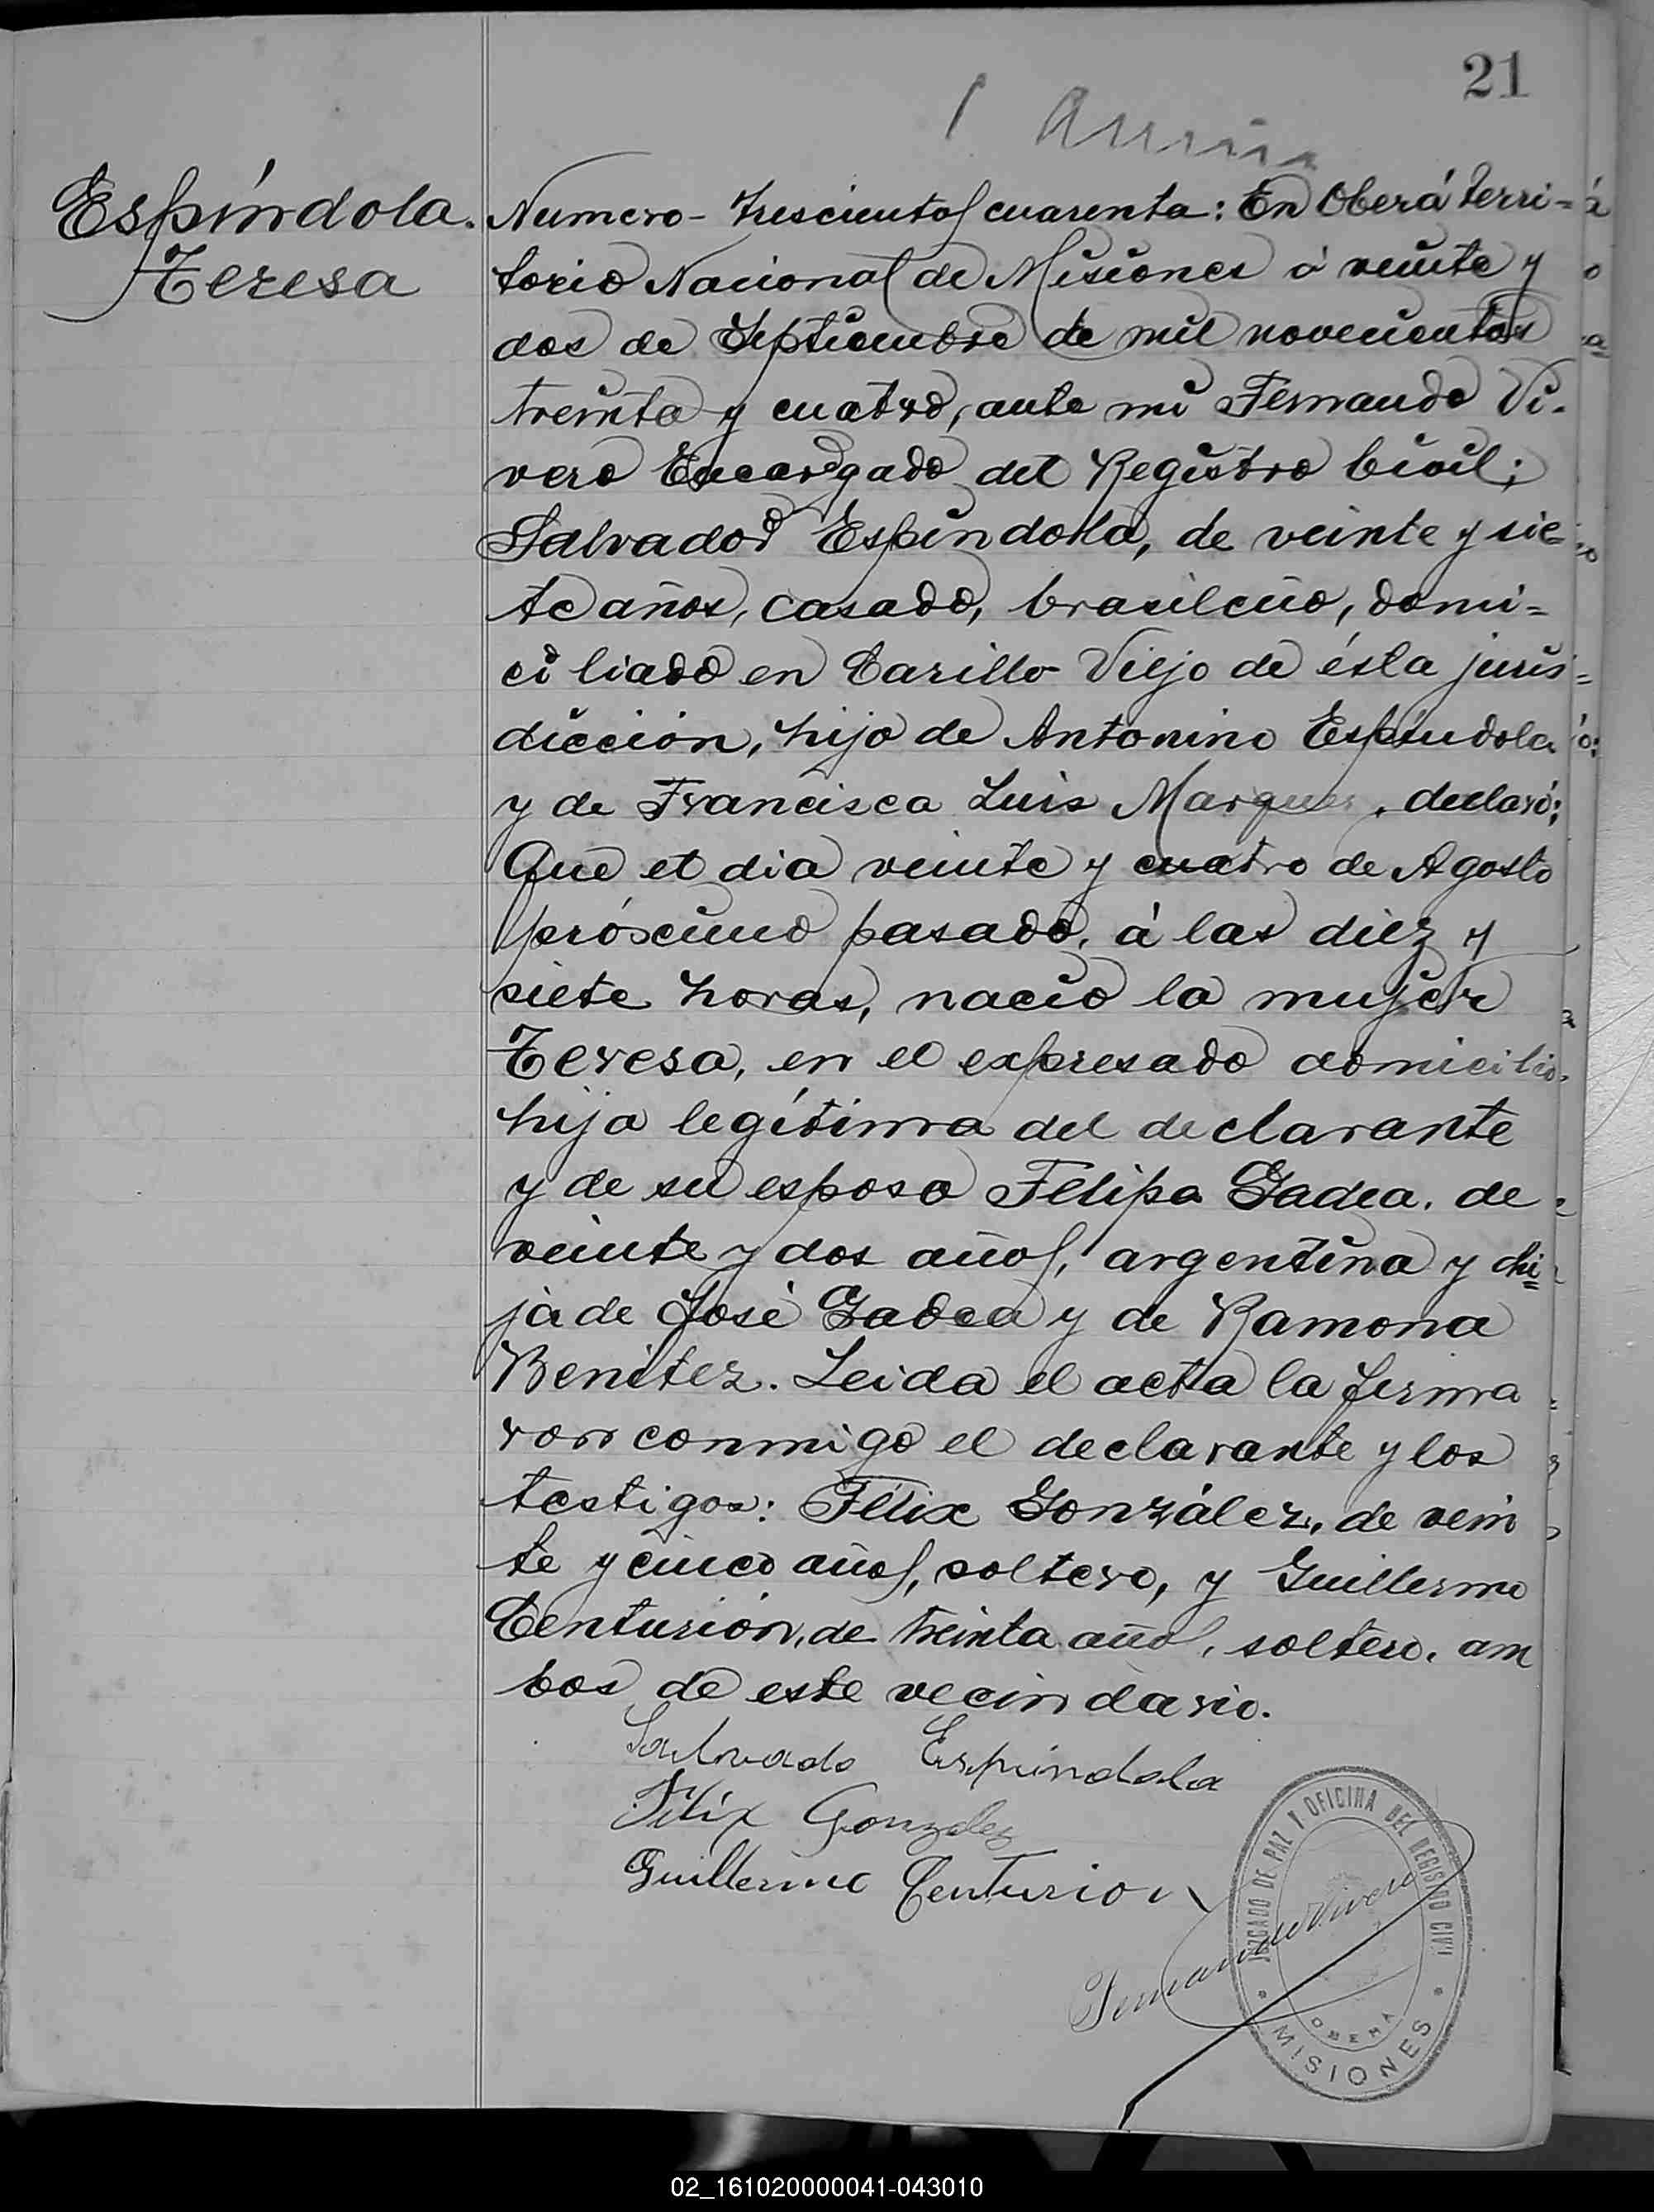 21
Espíndola.
Teresa
Numero - Trescientos cuarenta: En Oberá terri=
torio Nacional de Misiones á veinte y
dos de Septiembre de mil novecientos
treinta y cuatro, ante mi Fernando Vi-
vero Encargado del Registro Civil;
Salvador Espíndola, de veinte y sie=
te años, casado, brasileño, domi=
ciliado en Carillo Viejo de ésta juris=
dicción, hijo de Antonino Espíndola
y de Francisca Luis Marques, declaró:
Que el dia veinte y cuatro de Agosto
próximo pasado, á las diez y
siete horas, nació la mujer
Teresa, en el expresado domicilio,
hija legítima del declarante
y de su esposa Felipa Gadea, de
veinte y dos años, argentina y hi=
ja de José Gadea y de Ramona
Benitez. Leida el acta la firma
ron conmigo el declarante y los
testigos: Félix González, de vein
te y cinco años, soltero, y Guillermo
Centurión, de treinta años, soltero, am
bos de este vecindario.
Salvado Espindola
Félix Gonzalez
Guillermo Centurion
Fernando Vivero
JUZGADO DE PAZ Y OFICINA DEL REGISTRO CIVIL
OBERA
* MISIONES *
02_161020000041-043010